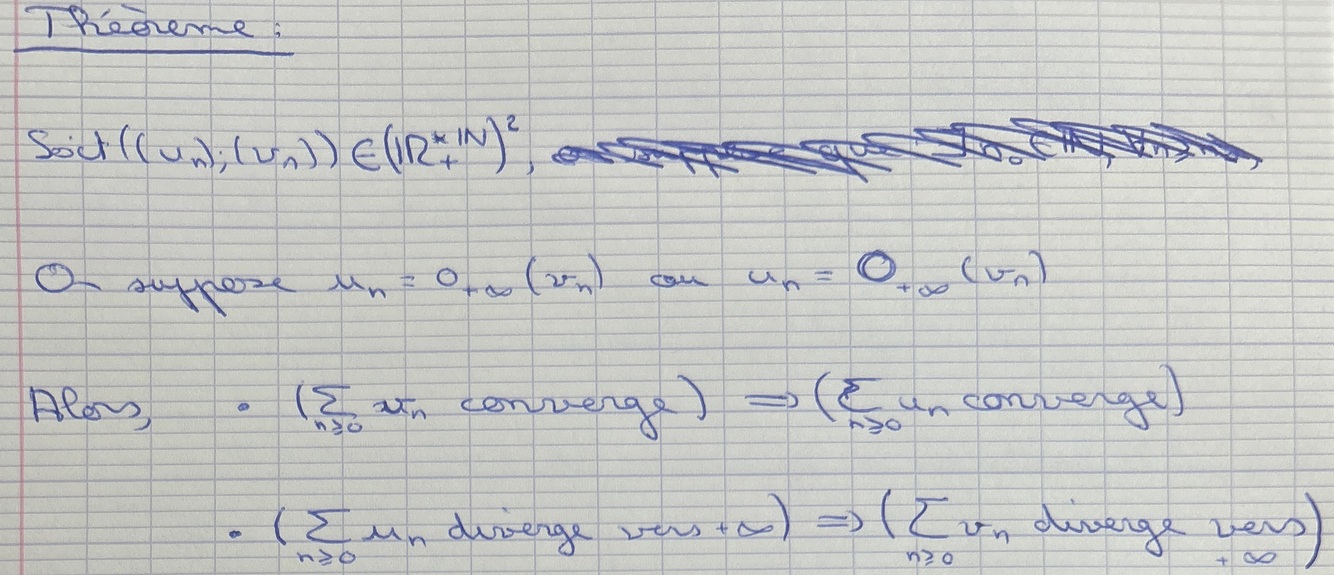 Théorème :
Soit ((un);(vn)) ∈ (ℝ₊*^ℕ)²,
On suppose un = o₊∞(vn) ou un = O₊∞(vn)
Alors, • (∑n≥0 vn converge) ⟹ (∑n≥0 un converge)
• (∑n≥0 un diverge vers +∞) ⟹ (∑n≥0 vn diverge vers +∞)